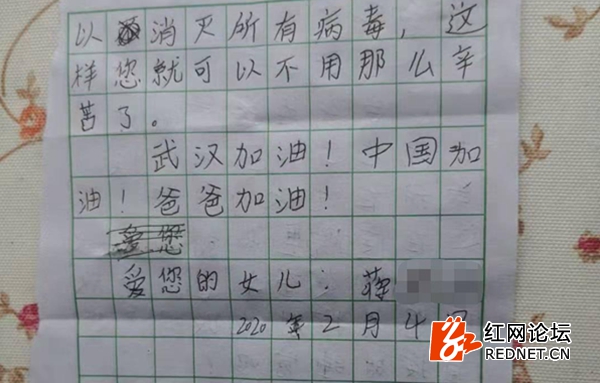 以消灭所有病毒，这
样您就可以不用那么辛
苦了。
武汉加油！中国加
油！爸爸加油！
爱您
爱您的女儿：蒋
2020年2月4日
红网论坛
REDNET.CN